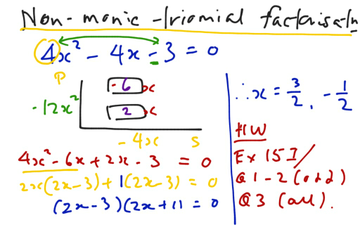 Non-monic trinomial factorisatn
4x² - 4x - 3 = 0
P
-12x²
-6x
2x
-4x S
4x² - 6x + 2x - 3 = 0
2x(2x-3) + 1(2x-3) = 0
(2x-3)(2x+1) = 0
∴ x = 3/2, -1/2
HW
Ex 15I/
Q1-2 (odd)
Q3 (all).